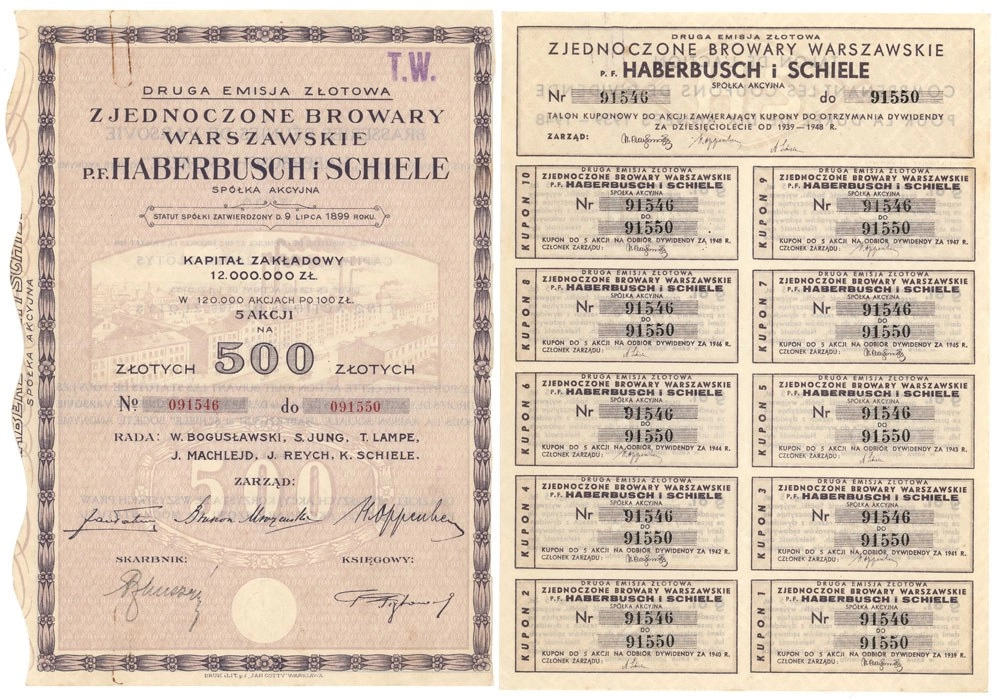 T.W.
DRUGA EMISJA ZŁOTOWA
ZJEDNOCZONE BROWARY
WARSZAWSKIE
P.F. HABERBUSCH i SCHIELE
SPÓŁKA AKCYJNA
STATUT SPÓŁKI ZATWIERDZONY D. 9 LIPCA 1899 ROKU.
KAPITAŁ ZAKŁADOWY
12.000.000 ZŁ.
W 120.000 AKCJACH PO 100 ZŁ.
5 AKCJI
NA
ZŁOTYCH 500 ZŁOTYCH
No 091546 do 091550
RADA: W. BOGUSŁAWSKI, S. JUNG, T. LAMPE,
J. MACHLEJD, J. REYCH, K. SCHIELE.
500
ZARZĄD:
SKARBNIK: KSIĘGOWY:
DRUK. i LIT. p.f. „JAN COTTY" WARSZAWA
SPÓŁKA AKCYJNA
DRUGA EMISJA ZŁOTOWA
ZJEDNOCZONE BROWARY WARSZAWSKIE
P. F. HABERBUSCH i SCHIELE
SPÓŁKA AKCYJNA
Nr 91546 do 91550
TALON KUPONOWY DO AKCJI ZAWIERAJĄCY KUPONY DO OTRZYMANIA DYWIDENDY
ZA DZIESIĘCIOLECIE OD 1939—1948 R.
ZARZĄD:
KUPON 10
DRUGA EMISJA ZŁOTOWA
ZJEDNOCZONE BROWARY WARSZAWSKIE
P. F. HABERBUSCH i SCHIELE
SPÓŁKA AKCYJNA
Nr 91546
DO
91550
KUPON DO 5 AKCJI NA ODBIÓR DYWIDENDY ZA 1948 R.
CZŁONEK ZARZĄDU:
KUPON 9
DRUGA EMISJA ZŁOTOWA
ZJEDNOCZONE BROWARY WARSZAWSKIE
P. F. HABERBUSCH i SCHIELE
SPÓŁKA AKCYJNA
Nr 91546
DO
91550
KUPON DO 5 AKCJI NA ODBIÓR DYWIDENDY ZA 1947 R.
CZŁONEK ZARZĄDU:
KUPON 8
DRUGA EMISJA ZŁOTOWA
ZJEDNOCZONE BROWARY WARSZAWSKIE
P. F. HABERBUSCH i SCHIELE
SPÓŁKA AKCYJNA
Nr 91546
DO
91550
KUPON DO 5 AKCJI NA ODBIÓR DYWIDENDY ZA 1946 R.
CZŁONEK ZARZĄDU:
KUPON 7
DRUGA EMISJA ZŁOTOWA
ZJEDNOCZONE BROWARY WARSZAWSKIE
P. F. HABERBUSCH i SCHIELE
SPÓŁKA AKCYJNA
Nr 91546
DO
91550
KUPON DO 5 AKCJI NA ODBIÓR DYWIDENDY ZA 1945 R.
CZŁONEK ZARZĄDU:
KUPON 6
DRUGA EMISJA ZŁOTOWA
ZJEDNOCZONE BROWARY WARSZAWSKIE
P. F. HABERBUSCH i SCHIELE
SPÓŁKA AKCYJNA
Nr 91546
DO
91550
KUPON DO 5 AKCJI NA ODBIÓR DYWIDENDY ZA 1944 R.
CZŁONEK ZARZĄDU:
KUPON 5
DRUGA EMISJA ZŁOTOWA
ZJEDNOCZONE BROWARY WARSZAWSKIE
P. F. HABERBUSCH i SCHIELE
SPÓŁKA AKCYJNA
Nr 91546
DO
91550
KUPON DO 5 AKCJI NA ODBIÓR DYWIDENDY ZA 1943 R.
CZŁONEK ZARZĄDU:
KUPON 4
DRUGA EMISJA ZŁOTOWA
ZJEDNOCZONE BROWARY WARSZAWSKIE
P. F. HABERBUSCH i SCHIELE
SPÓŁKA AKCYJNA
Nr 91546
DO
91550
KUPON DO 5 AKCJI NA ODBIÓR DYWIDENDY ZA 1942 R.
CZŁONEK ZARZĄDU:
KUPON 3
DRUGA EMISJA ZŁOTOWA
ZJEDNOCZONE BROWARY WARSZAWSKIE
P. F. HABERBUSCH i SCHIELE
SPÓŁKA AKCYJNA
Nr 91546
DO
91550
KUPON DO 5 AKCJI NA ODBIÓR DYWIDENDY ZA 1941 R.
CZŁONEK ZARZĄDU:
KUPON 2
DRUGA EMISJA ZŁOTOWA
ZJEDNOCZONE BROWARY WARSZAWSKIE
P. F. HABERBUSCH i SCHIELE
SPÓŁKA AKCYJNA
Nr 91546
DO
91550
KUPON DO 5 AKCJI NA ODBIÓR DYWIDENDY ZA 1940 R.
CZŁONEK ZARZĄDU:
KUPON 1
DRUGA EMISJA ZŁOTOWA
ZJEDNOCZONE BROWARY WARSZAWSKIE
P. F. HABERBUSCH i SCHIELE
SPÓŁKA AKCYJNA
Nr 91546
DO
91550
KUPON DO 5 AKCJI NA ODBIÓR DYWIDENDY ZA 1939 R.
CZŁONEK ZARZĄDU: